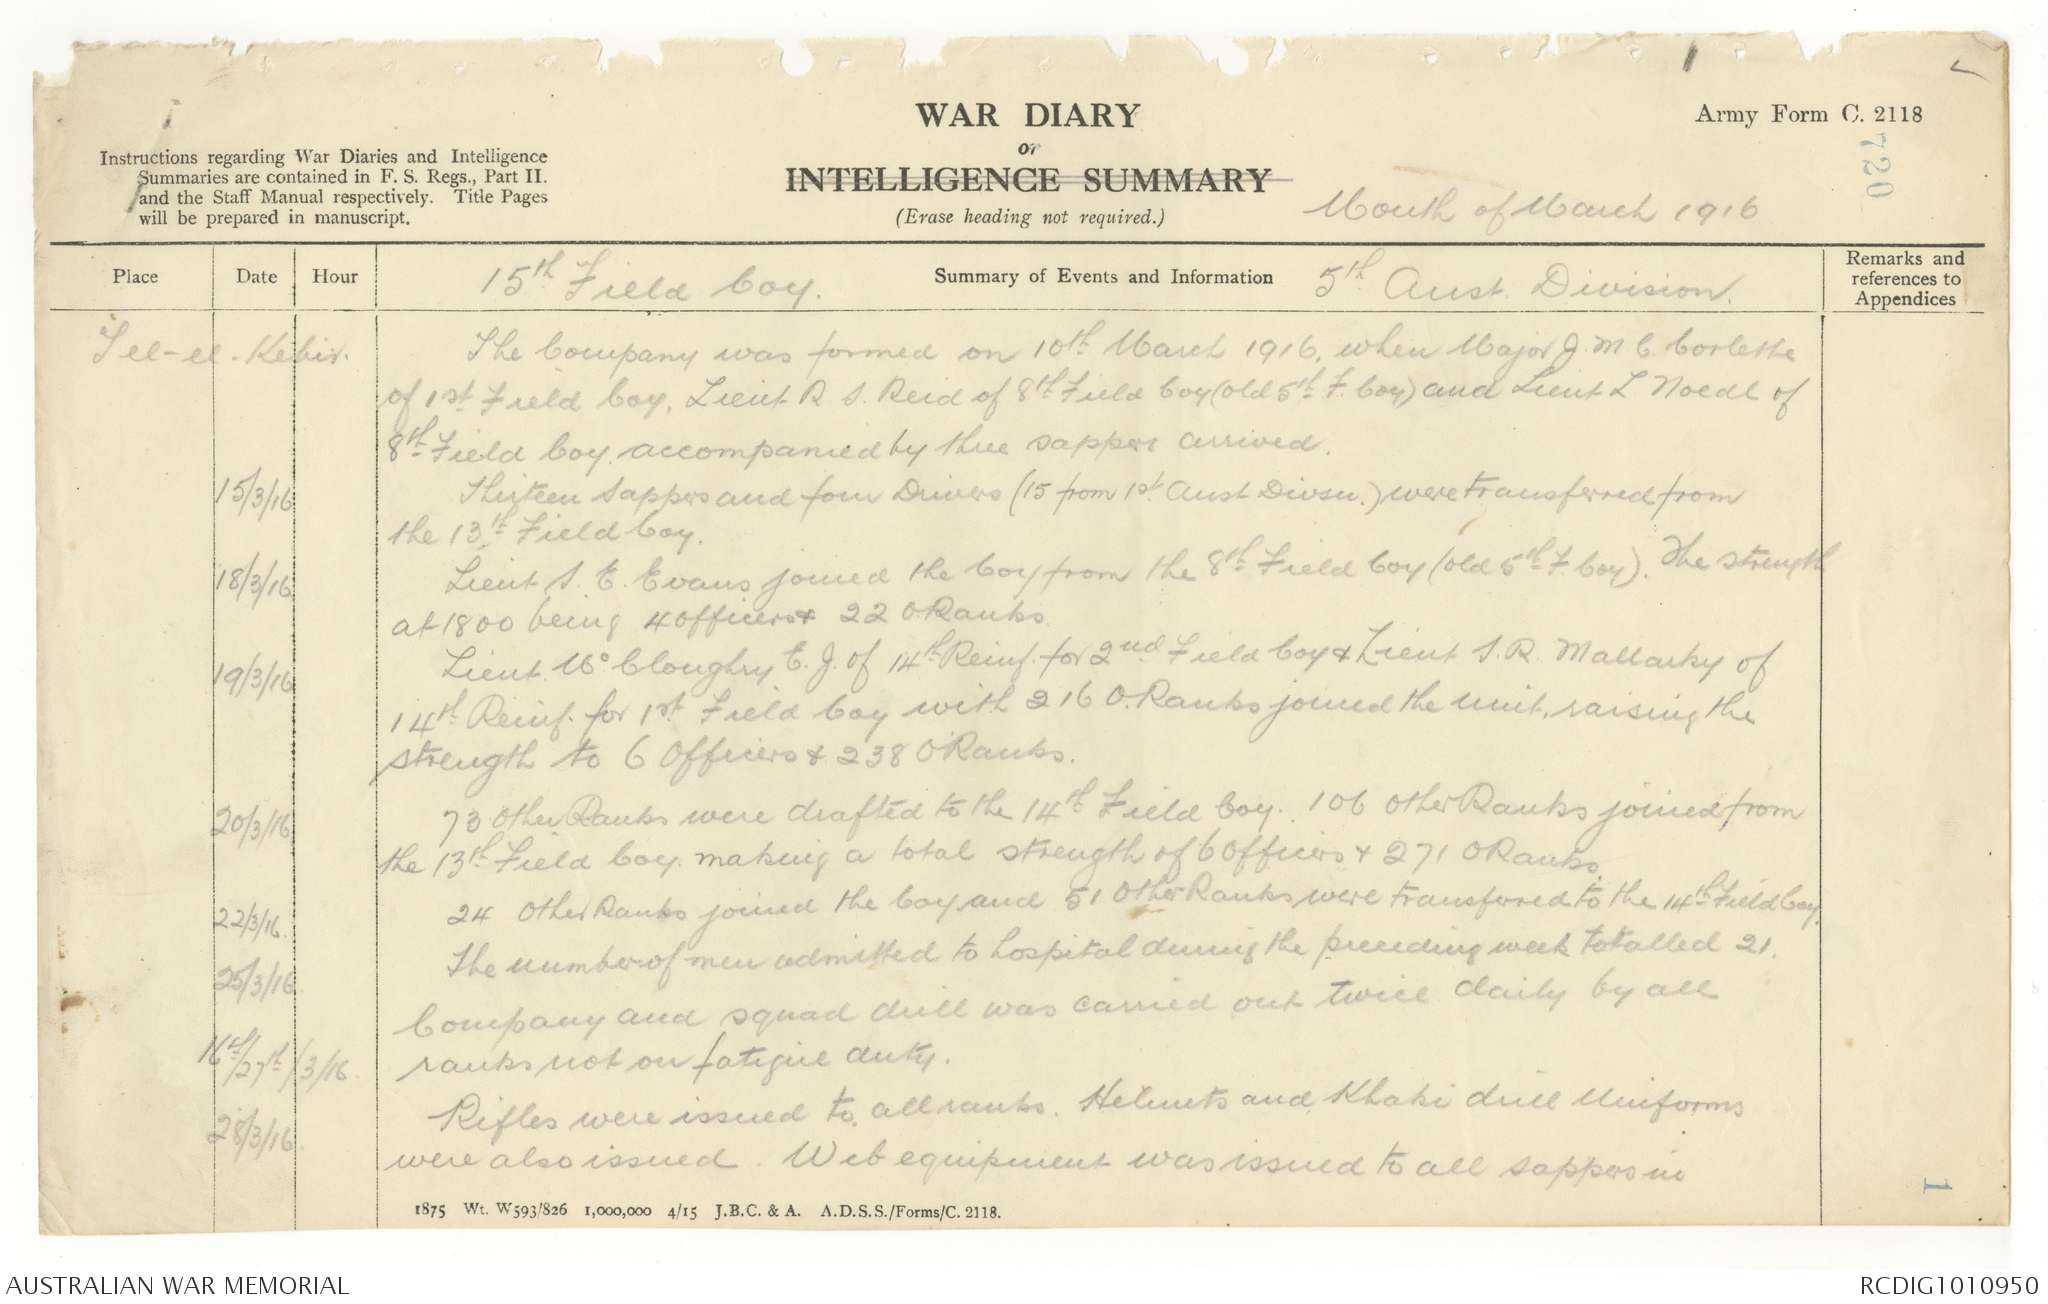 WAR DIARY
or
INTELLIGENCE SUMMARY
(Erase heading not required.)
Army Form C. 2118
720
Instructions regarding War Diaries and Intelligence
Summaries are contained in F. S. Regs., Part II.
and the Staff Manual respectively. Title Pages
will be prepared in manuscript.
Month of March 1916
Place
Date
Hour
Summary of Events and Information
Remarks and
references to
Appendices
15th Field Coy. 5th Aust. Division.
Tel-el-Kebir.
The Company was formed on 10th March 1916, when Major J. M. C. Corlette
of 1st Field Coy, Lieut R. S. Reid of 8th Field Coy (old 5th F. Coy) and Lieut L Noedl of
8th Field Coy. accompanied by three sappers arrived.
15/3/16
Thirteen Sappers and four Drivers (15 from 1st Aust Divsn.) were transferred from
the 13th Field Coy.
18/3/16
Lieut S. E. Evans joined the Coy from the 8th Field Coy (old 5th F. Coy). The strength
at 1800 being 4 officers & 22 O.Ranks
19/3/16
Lieut. Mc Cloughry E. J. of 14th Reinf. for 2nd Field Coy & Lieut S. R. Mallarky of
14th Reinf. for 1st Field Coy with 216 O.Ranks joined the unit, raising the
strength to 6 Officers & 238 O Ranks.
20/3/16
73 Other Ranks were drafted to the 14th Field Coy. 106 other Ranks joined from
the 13th Field Coy. making a total strength of 6 Officers & 271 O Ranks.
22/3/16.
24 Other Ranks joined the Coy and 51 Other Ranks were transferred to the 14th Field Coy.
25/3/16
The number of men admitted to hospital during the preceding week totalled 21.
16th/27th/3/16.
Company and squad drill was carried out twice daily by all
ranks not on fatigue duty.
28/3/16.
Rifles were issued to all ranks. Helmets and Khaki drill Uniforms
were also issued. Web equipment was issued to all sappers in
1
1875 Wt. W593/826 1,000,000 4/15 J.B.C. & A. A.D.S.S./Forms/C. 2118.
AUSTRALIAN WAR MEMORIAL
RCDIG1010950